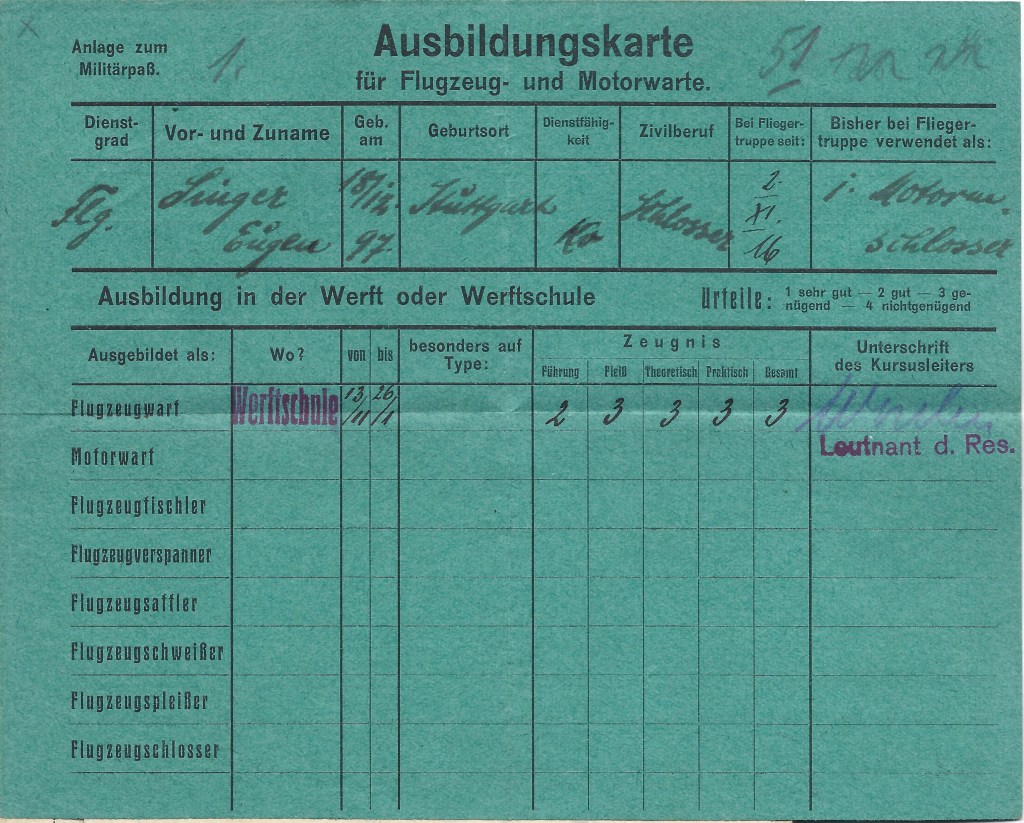 Anlage zum
Militärpaß.
1.
Ausbildungskarte
für Flugzeug- und Motorwarte.
51
Dienst-
grad
Vor- und Zuname
Geb.
am
Geburtsort
Dienstfähig-
keit
Zivilberuf
Bei Flieger-
truppe seit:
Bisher bei Flieger-
truppe verwendet als:
Flg.
Singer
Eugen
18/12.
97.
Stuttgart
Kv
Schlosser
2.
XI.
16
j. Motoren-
schlosser
Ausbildung in der Werft oder Werftschule
Urteile: 1 sehr gut — 2 gut — 3 ge-
nügend — 4 nichtgenügend
Ausgebildet als:
Wo?
von
bis
besonders auf
Type:
Zeugnis
Führung
Fleiß
Theoretisch
Praktisch
Gesamt
Unterschrift
des Kursusleiters
Flugzeugwart
Werftschule
13,
/11
26,
/1
2 3 3 3 3
Leutnant d. Res.
Motorwart
Flugzeugtischler
Flugzeugverspanner
Flugzeugsattler
Flugzeugschweißer
Flugzeugspleißer
Flugzeugschlosser